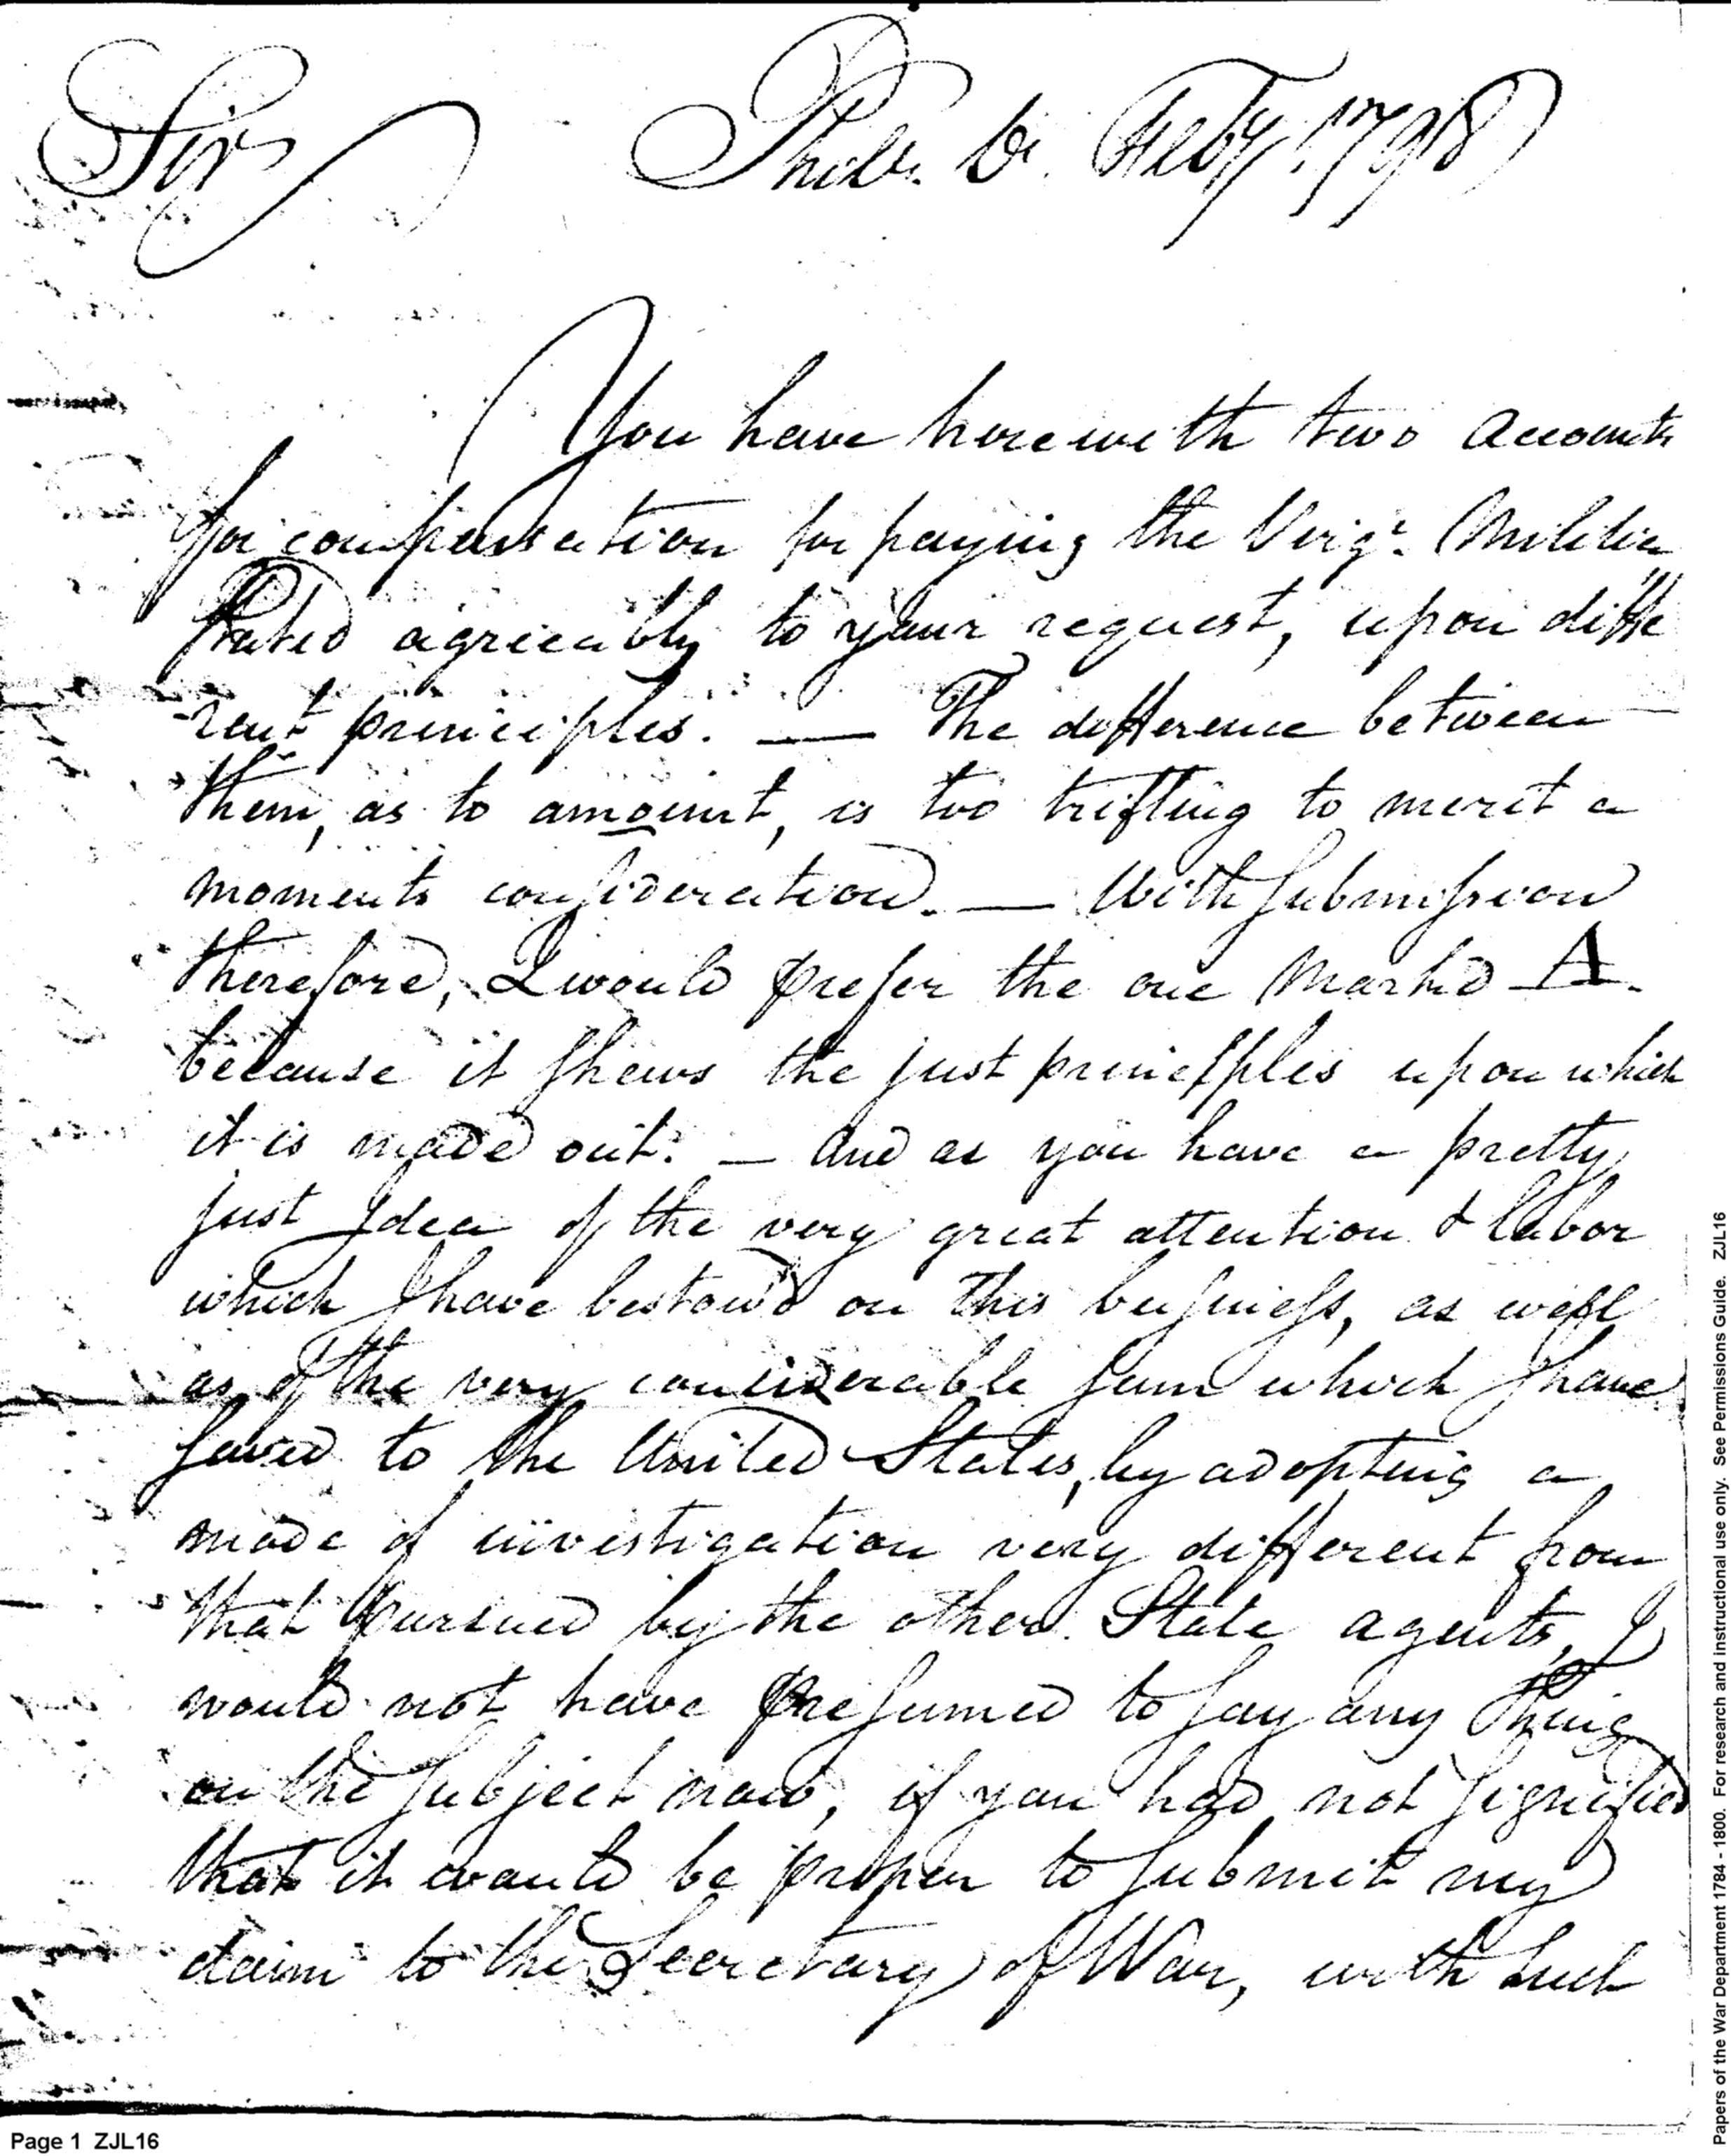 Sir
Phila. 6. Feby. 1798
You have herewith two accounts
for compensation for paying the Virga. Militia
stated agreeably to your request, upon diffe
-rent principles. — The difference between
them, as to amount, is too trifling to merit a
moments consideration. — With submission
therefore, I would prefer the one marked A.
because it shews the just principples upon which
it is made out. — And as you have a pretty
just Idea of the very great attention & labor
which I have bestow'd on this business, as well
as of the very considerable sum which I have
saved to the United States, by adopting a
mode of investigation very different from
that pursued by the other State agents, I
would not have presumed to say any thing
on the subject now, if you had not signified
that it would be proper to submit my
claim to the Secretary of War, with such
Page 1 ZJL16
Papers of the War Department 1784 - 1800. For research and instructional use only. See Permissions Guide. ZJL16